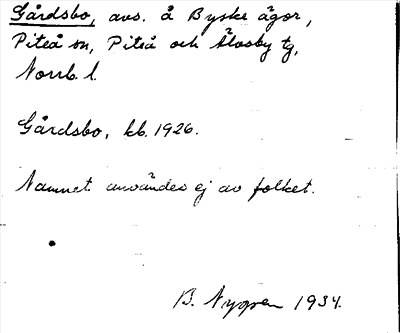 Gårdsbo, avs. å Byske ägor,
Piteå sn, Piteå och Älvsby tg,
Norrb. l.
Gårdsbo, kb. 1926.
Namnet användes ej av folket.
B. Nygren 1934.